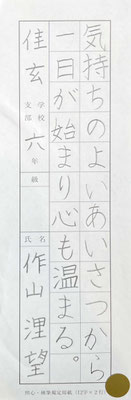 気持ちのよいあいさつから
一日が始まり心も温まる。
佳玄 学校 支部 六 年 級 氏名 作山 浬望
硬筆規定用紙(12字×2行)